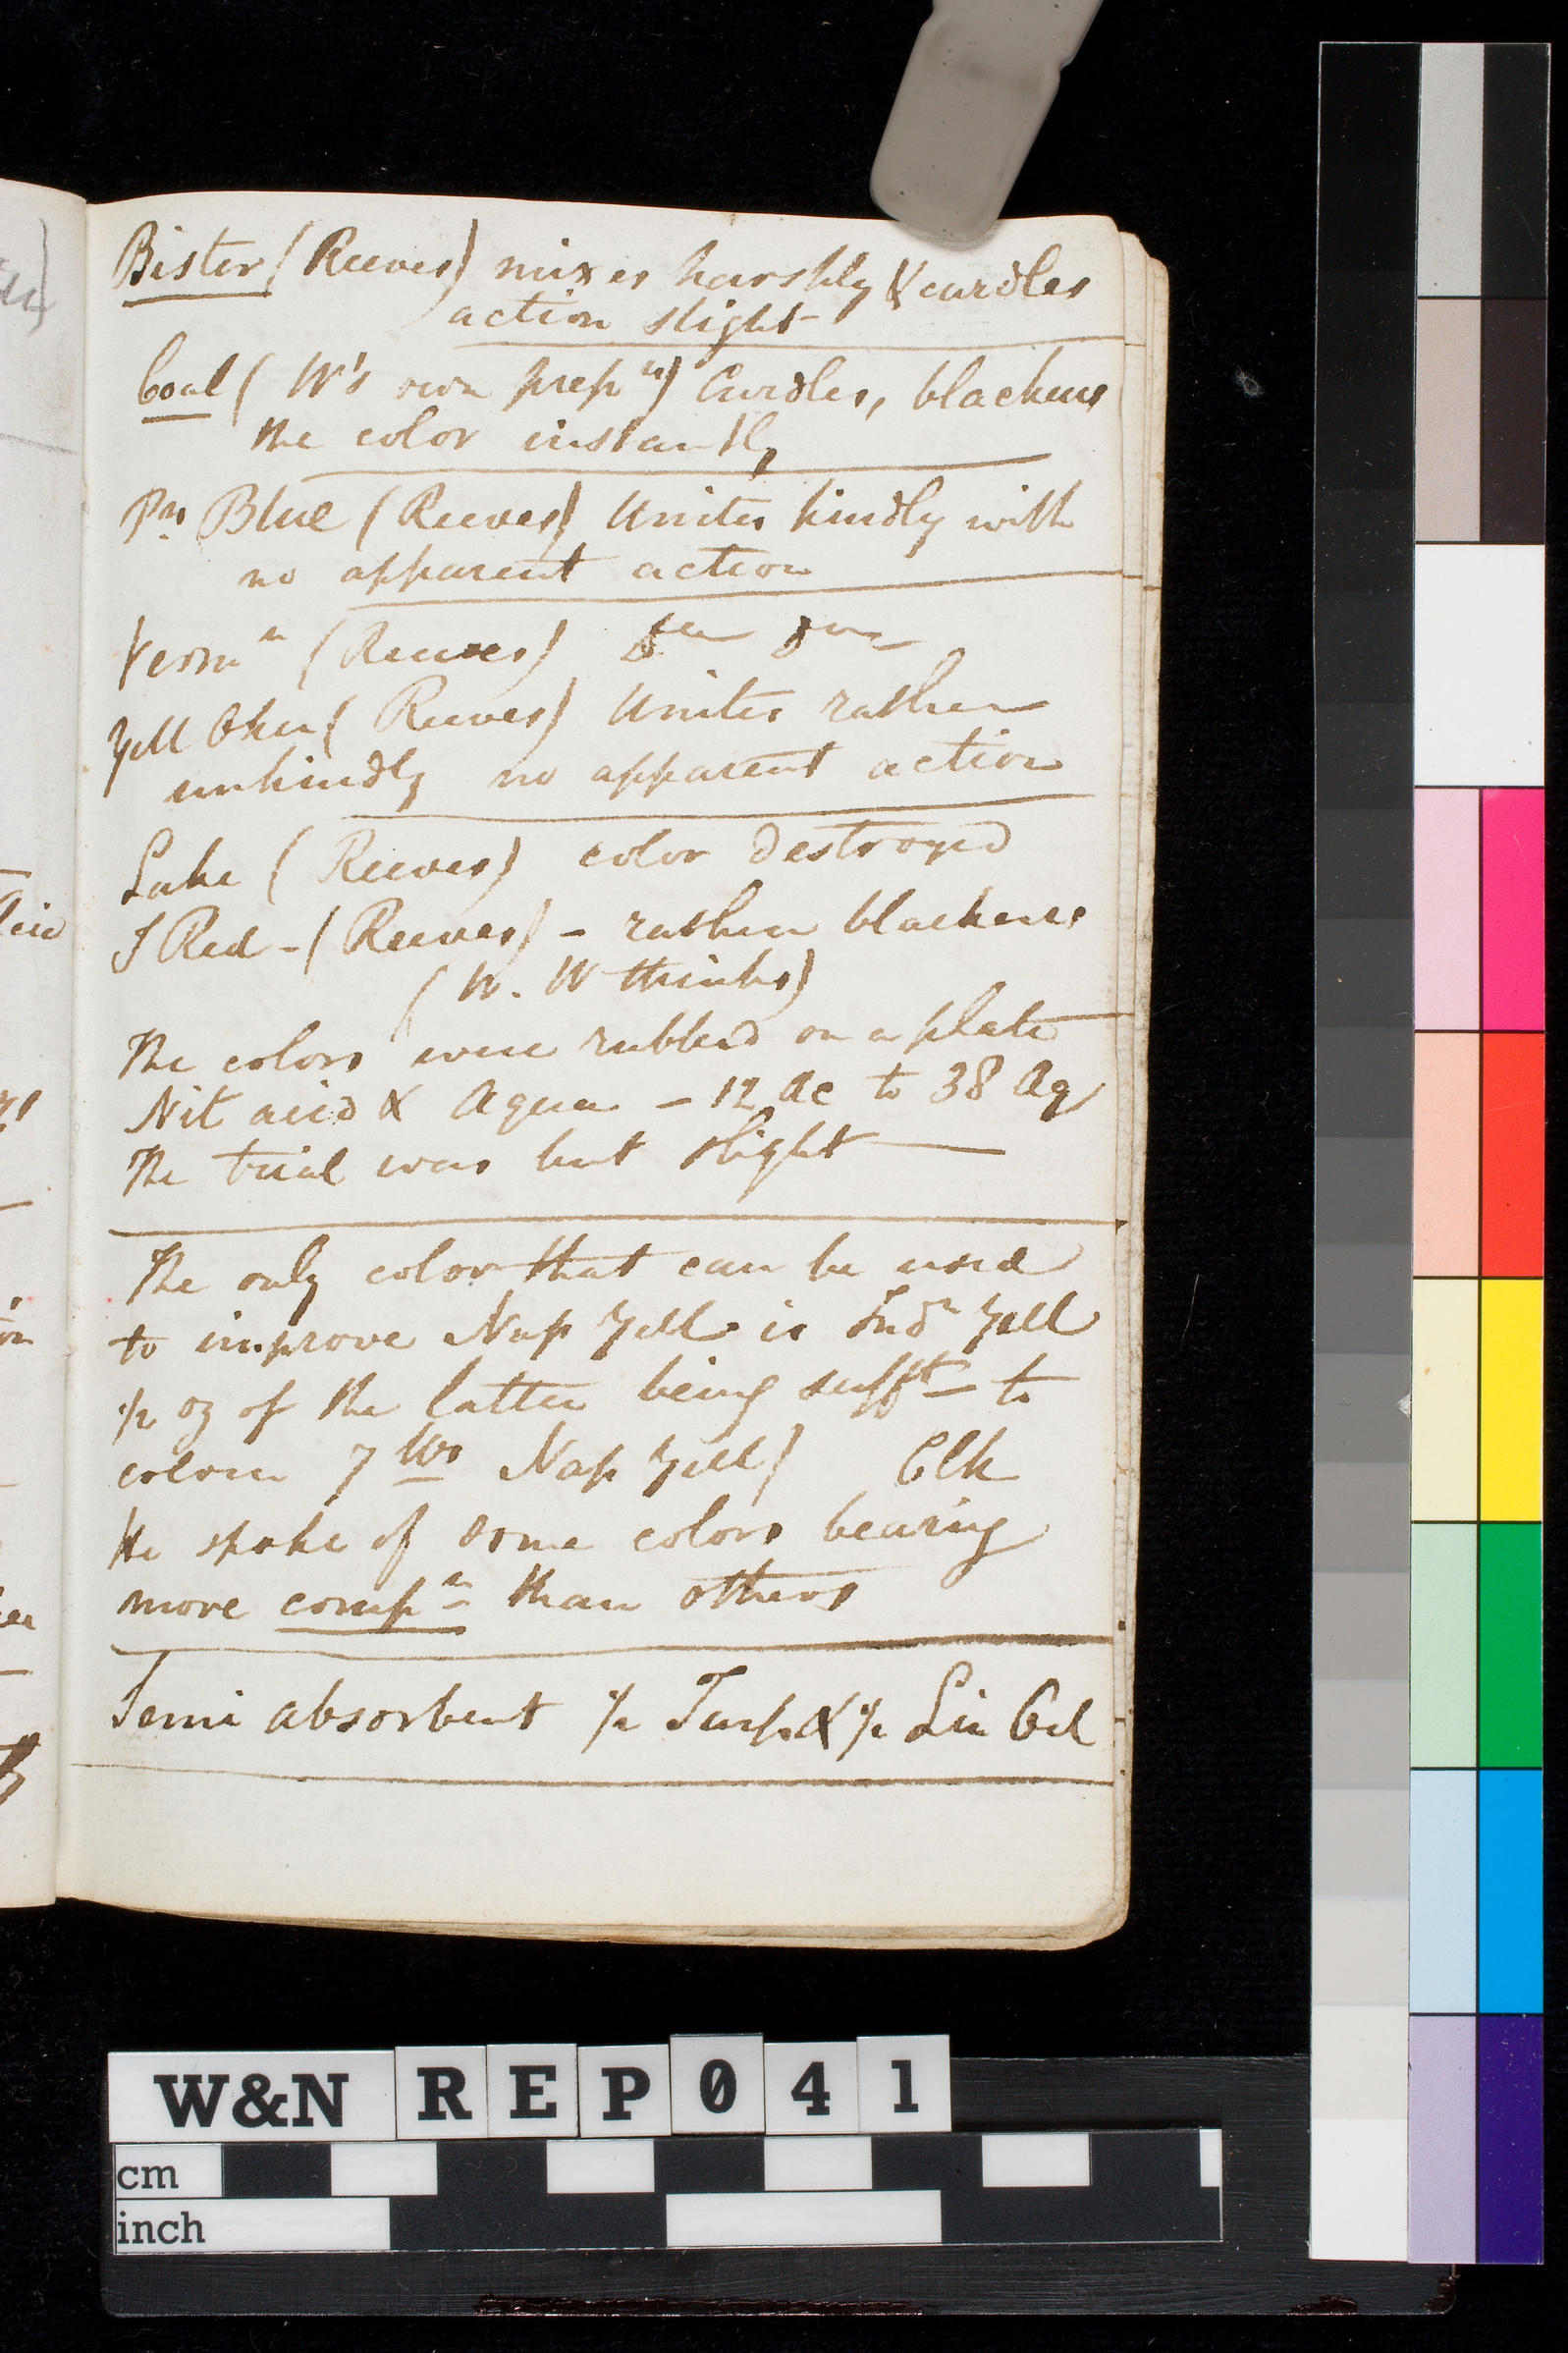 Bister (Reeves) mixes harshly & curdles
action slight
Coal (W's own prepn) Curdles, blackens
the color instantly
Pn Blue (Reeves) Unites kindly with
no apparent action
Vermn (Reeves)
Yell Oker (Reeves) Unites rather
unkindly no apparent action
Lake (Reeves) color destroyed
I Red - (Reeves) - rather blackens
(W. W thinks)
The colors were rubbed on a plate
Nit acid & Aqua - 12 Ac to 38 Aq
The trial was but slight
The only color that can be used
to improve Nap Yell is Indn Yell
1/2 oz of the latter being sufft to
colour 7 lbs Nap Yell) Clk
He spoke of some colors bearing
more compn than others
Semi absorbent 1/2 Turp & 1/2 Lin Oil
W&N REP041
cm
inch